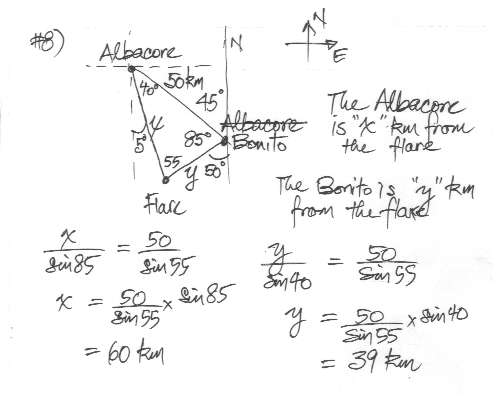 #8)
N
E
Albacore
N
50km
40°
45°
x
5°
85°
~~Albacore~~
Bonito
55
y
50°
Flare
The Albacore
is "x" km from
the flare
The Bonito is "y" km
from the flare
x/sin85 = 50/sin55
x = 50/sin55 × sin85
= 60 km
y/sin40 = 50/sin55
y = 50/sin55 × sin40
= 39 km